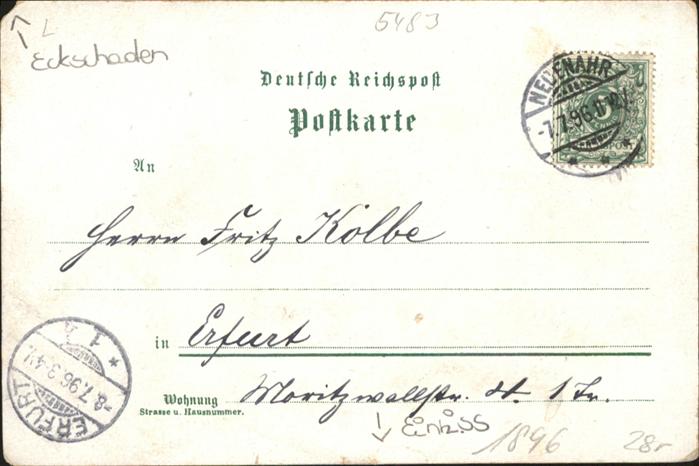 5483
Eckschaden
Deutsche Reichspost
Postkarte
NEUENAHR
-7.7.96.
An
Herrn Fritz Kolbe
in Erfurt
Wohnung Moritzwallstr. 1 Tr.
Strasse u. Hausnummer.
ERFURT
-8.7.96.3-4N.
* 1
Einriss
1896
28,-